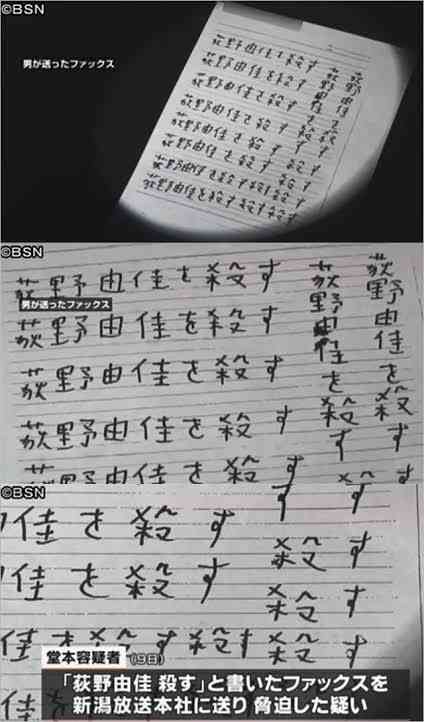 ©BSN
男が送ったファックス
荻野由佳を殺す
荻野由佳を殺す
荻野由佳を殺す
荻野由佳を殺す
荻野由佳を殺す 殺す
荻野由佳を殺す 殺す
荻野由佳を殺す殺す殺す
荻野由佳を殺す殺す殺す
荻野由佳を殺す
荻野由佳を殺す
©BSN
男が送ったファックス
荻野由佳を殺す
荻野由佳を殺す
荻野由佳を殺す
荻野由佳を殺す
荻野由佳を殺す
荻野由佳を殺す
荻野由佳を殺す
©BSN
佳を殺す
殺す
佳を殺す
殺す
佳を殺す殺す殺す
堂本容疑者(9日)
「荻野由佳 殺す」と書いたファックスを
新潟放送本社に送り 脅迫した疑い